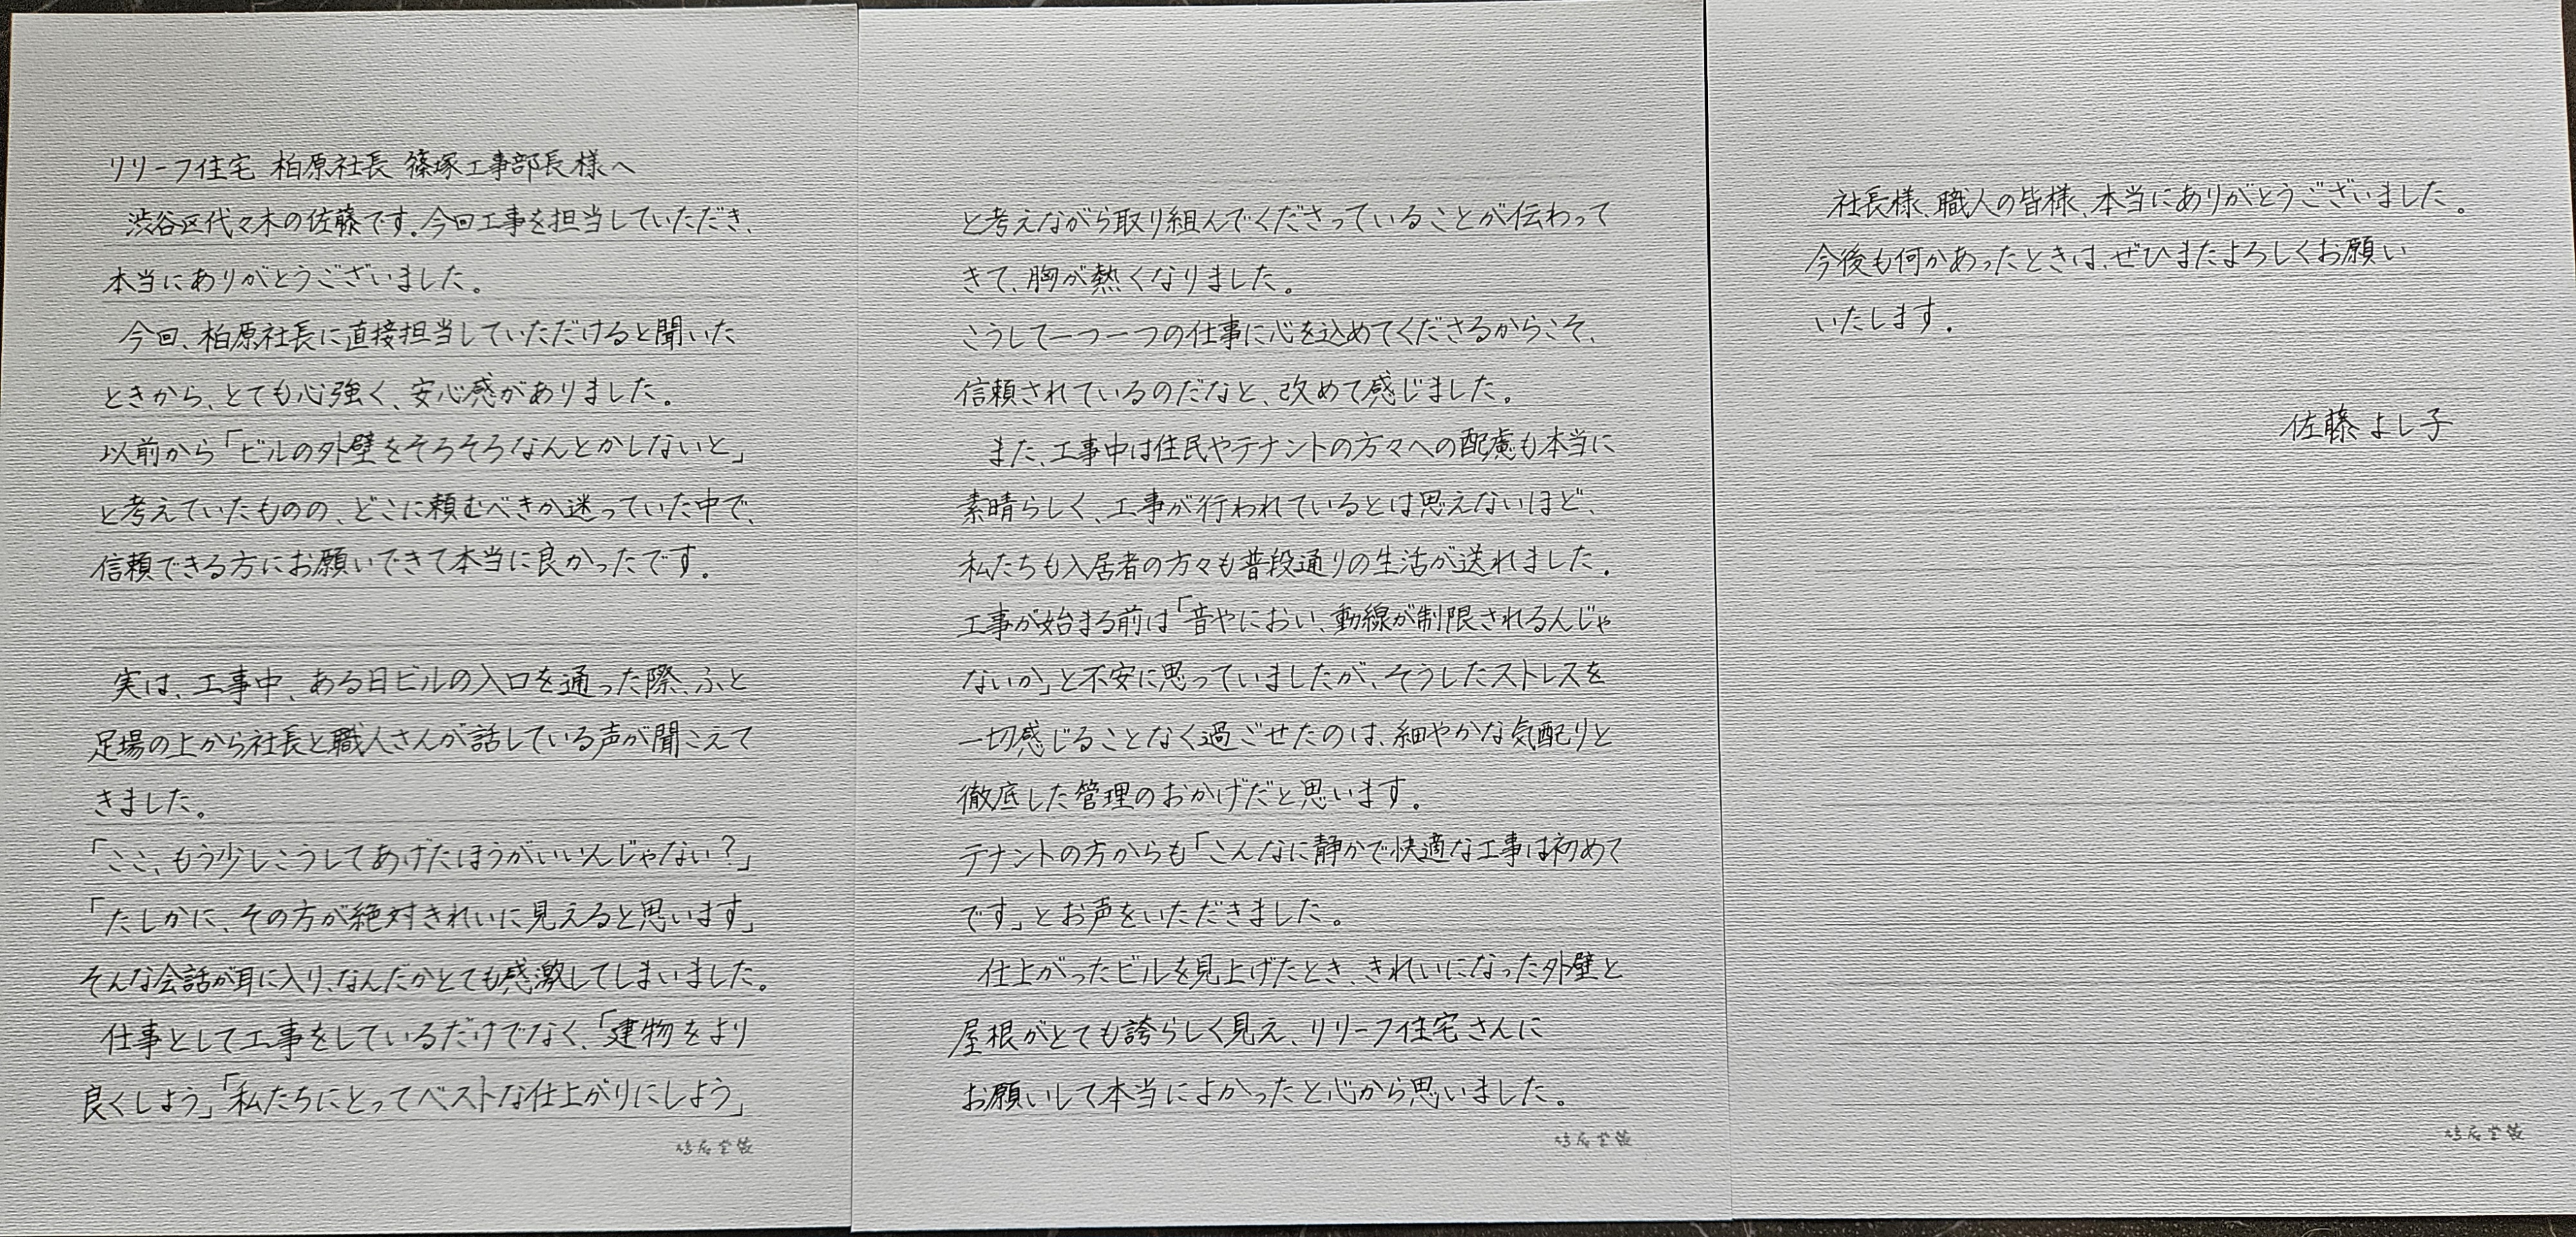 リリーフ住宅 柏原社長 篠塚工事部長様へ
渋谷区代々木の佐藤です。今回工事を担当していただき、
本当にありがとうございました。
今回、柏原社長に直接担当していただけると聞いた
ときから、とても心強く、安心感がありました。
以前から「ビルの外壁をそろそろなんとかしないと」
と考えていたものの、どこに頼むべきか迷っていた中で、
信頼できる方にお願いできて本当に良かったです。
実は、工事中、ある日ビルの入口を通った際、ふと
足場の上から社長と職人さんが話している声が聞こえて
きました。
「ここ、もう少しこうしてあげたほうがいいんじゃない?」
「たしかに、その方が絶対きれいに見えると思います」
そんな会話が耳に入り、なんだかとても感激してしまいました。
仕事として工事をしているだけでなく、「建物をより
良くしよう」「私たちにとってベストな仕上がりにしよう」
鳩居堂製
と考えながら取り組んでくださっていることが伝わって
きて、胸が熱くなりました。
こうして一つ一つの仕事に心を込めてくださるからこそ、
信頼されているのだなと、改めて感じました。
また、工事中は住民やテナントの方々への配慮も本当に
素晴らしく、工事が行われているとは思えないほど、
私たちも入居者の方々も普段通りの生活が送れました。
工事が始まる前は「音やにおい、動線が制限されるんじゃ
ないか」と不安に思っていましたが、そうしたストレスを
一切感じることなく過ごせたのは、細やかな気配りと
徹底した管理のおかげだと思います。
テナントの方からも「こんなに静かで快適な工事は初めて
です」とお声をいただきました。
仕上がったビルを見上げたとき、きれいになった外壁と
屋根がとても誇らしく見え、リリーフ住宅さんに
お願いして本当によかったと心から思いました。
鳩居堂製
社長様、職人の皆様、本当にありがとうございました。
今後も何かあったときは、ぜひまたよろしくお願い
いたします。
佐藤よし子
鳩居堂製